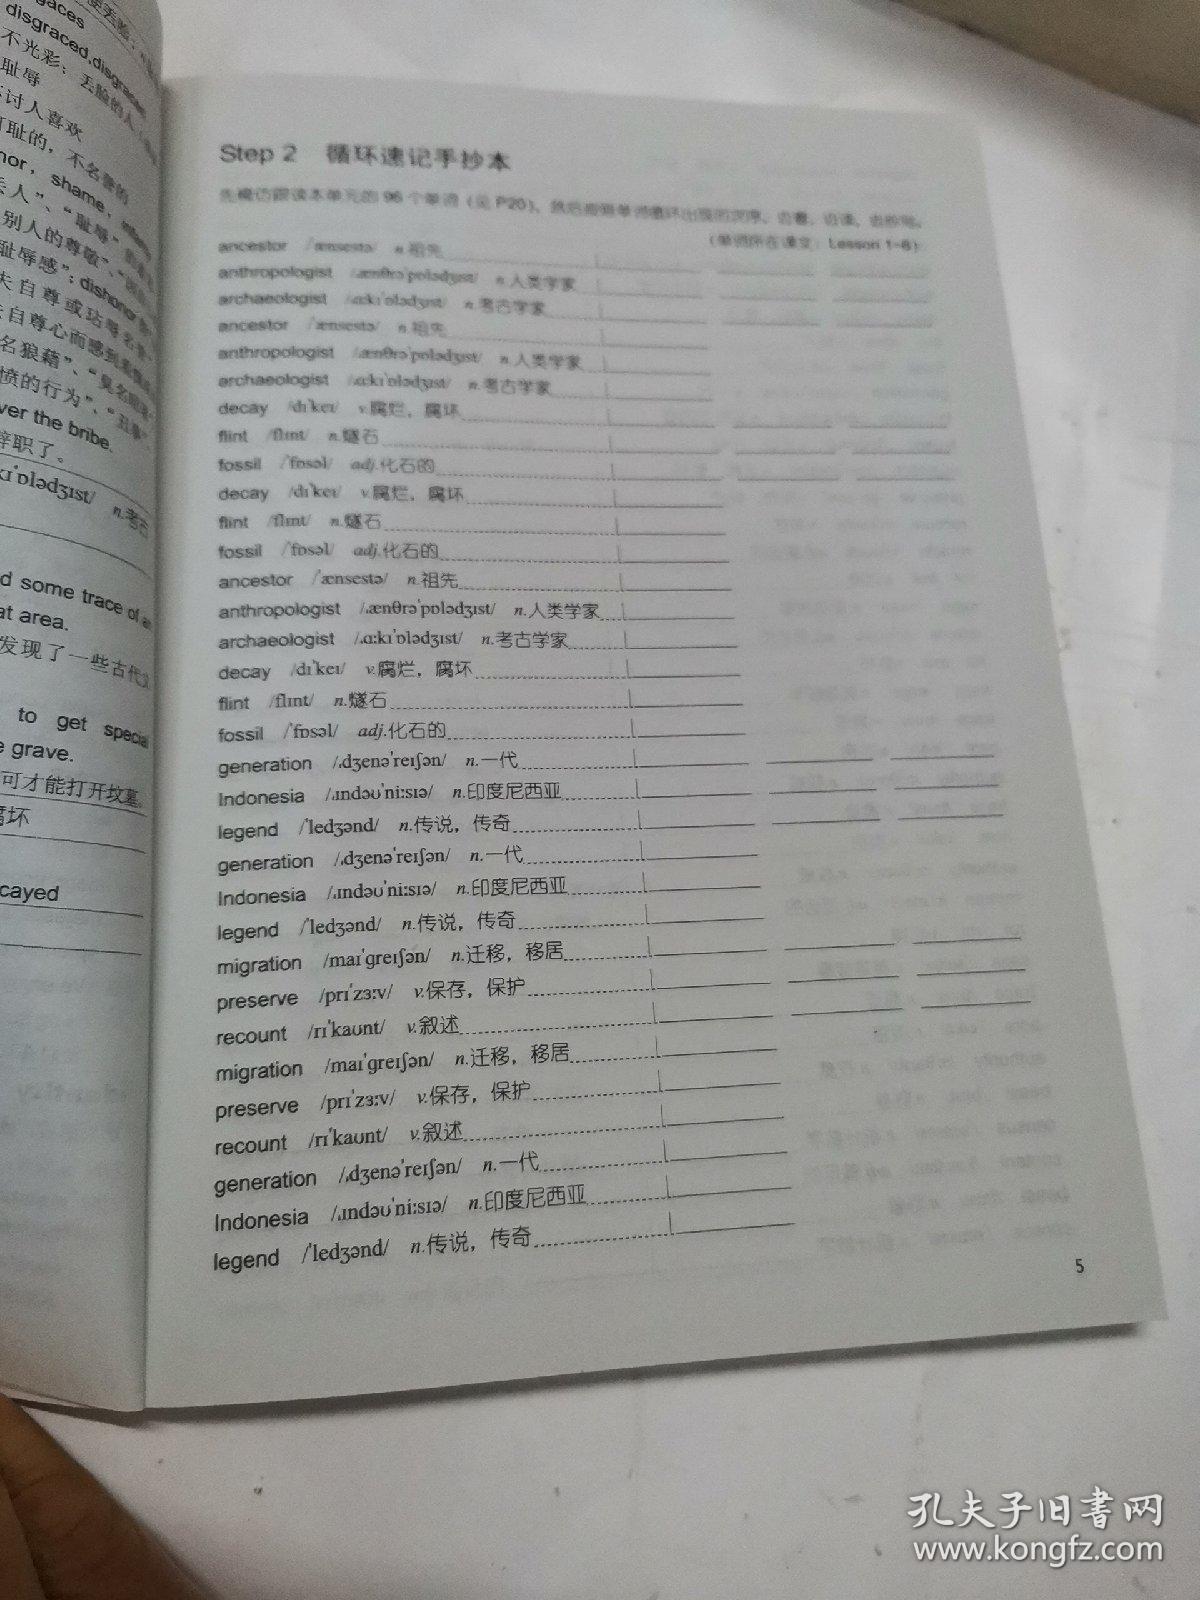 gaces
disgraced,disgraced
不光彩；丢脸的人
耻辱
讨人喜欢
可耻的，不名誉的
nor，shame，infamy
丢人”、“耻辱”
别人的尊敬”、
耻辱感”；dishonor
失自尊或玷辱名誉
去自尊心而感到
名狼藉”、“臭名昭著”
愤的行为”、“丑事”
ver the bribe.
辞职了。
kɪˈɒlədʒɪst/ n.考古
d some trace of an
at area.
发现了一些古代
to get special
e grave.
可才能打开坟墓。
腐坏
cayed
Step 2 循环速记手抄本
先模仿跟读本单元的 96 个单词（见 P20），然后按照单词循环出现的次序，边看，边读，边抄写。
（单词所在课文：Lesson 1~6）
ancestor /ˈænsestə/ n.祖先
anthropologist /ˌænθrəˈpɒlədʒɪst/ n.人类学家
archaeologist /ˌɑːkɪˈɒlədʒɪst/ n.考古学家
ancestor /ˈænsestə/ n.祖先
anthropologist /ˌænθrəˈpɒlədʒɪst/ n.人类学家
archaeologist /ˌɑːkɪˈɒlədʒɪst/ n.考古学家
decay /dɪˈkeɪ/ v.腐烂，腐坏
flint /flɪnt/ n.燧石
fossil /ˈfɒsəl/ adj.化石的
decay /dɪˈkeɪ/ v.腐烂，腐坏
flint /flɪnt/ n.燧石
fossil /ˈfɒsəl/ adj.化石的
ancestor /ˈænsestə/ n.祖先
anthropologist /ˌænθrəˈpɒlədʒɪst/ n.人类学家
archaeologist /ˌɑːkɪˈɒlədʒɪst/ n.考古学家
decay /dɪˈkeɪ/ v.腐烂，腐坏
flint /flɪnt/ n.燧石
fossil /ˈfɒsəl/ adj.化石的
generation /ˌdʒenəˈreɪʃən/ n.一代
Indonesia /ˌɪndəʊˈniːsɪə/ n.印度尼西亚
legend /ˈledʒənd/ n.传说，传奇
generation /ˌdʒenəˈreɪʃən/ n.一代
Indonesia /ˌɪndəʊˈniːsɪə/ n.印度尼西亚
legend /ˈledʒənd/ n.传说，传奇
migration /maɪˈgreɪʃən/ n.迁移，移居
preserve /prɪˈzɜːv/ v.保存，保护
recount /rɪˈkaʊnt/ v.叙述
migration /maɪˈgreɪʃən/ n.迁移，移居
preserve /prɪˈzɜːv/ v.保存，保护
recount /rɪˈkaʊnt/ v.叙述
generation /ˌdʒenəˈreɪʃən/ n.一代
Indonesia /ˌɪndəʊˈniːsɪə/ n.印度尼西亚
legend /ˈledʒənd/ n.传说，传奇
5
孔夫子旧书网
www.kongfz.com